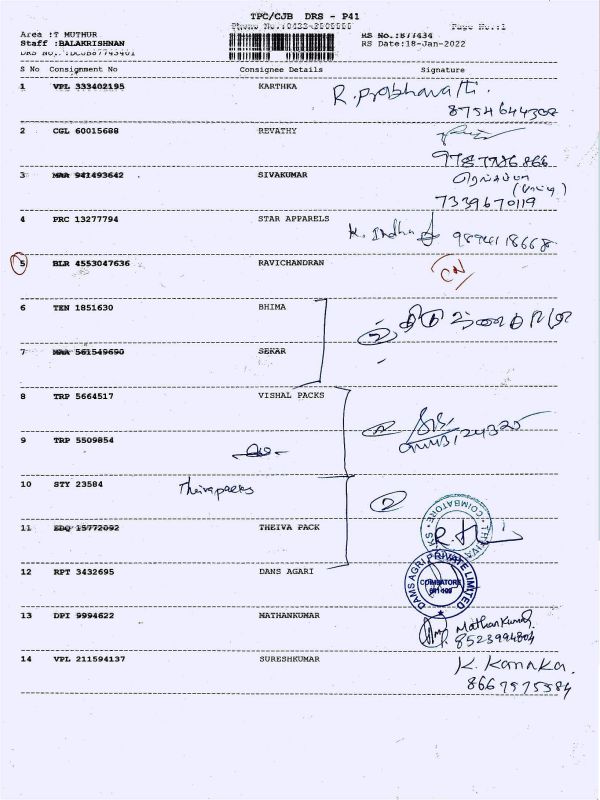 TPC/CJB DRS - P41
Area :T MUTHUR
Staff :BALAKRISHNAN
RS No.:877434
RS Date:18-Jan-2022
Page No.:1
S No Consignment No Consignee Details Signature
1 VPL 333402195 KARTHKA R. Prabhavathi.
8754644308
2 CGL 60015688 REVATHY
9787786866
3 MAA 941493642 SIVAKUMAR
7339670119
4 PRC 13277794 STAR APPARELS K. Indha 9894118668
5 BLR 4553047636 RAVICHANDRAN CN
6 TEN 1851630 BHIMA
2
7 MAA 561549690 SEKAR
8 TRP 5664517 VISHAL PACKS
2
9 TRP 5509854
10 STY 23584 Theivapacks
2
11 EDQ 15772092 THEIVA PACK
12 RPT 3432695 DANS AGARI
DAMS AGRI PRIVATE LIMITED
COIMBATORE
13 DPI 9994622 MATHANKUMAR Mathankumar
8523994804
14 VPL 211594137 SURESHKUMAR K. Kanaka.
8667975584